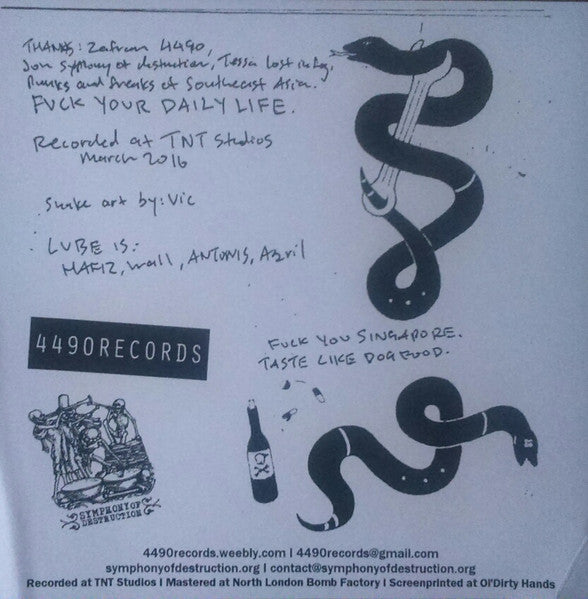 THANKS: Zafran 4490,
Jon Symphony of destruction, Tessa Lost in fog,
Punks and freaks of Southeast Asia.
FUCK YOUR DAILY LIFE.
Recorded at TNT Studios
March 2016
Snake art by: Vic
LUBE IS:
HAFIZ, Wall, ANTONIS, Azril
4490RECORDS
FUCK YOU SINGAPORE.
TASTE LIKE DOG FOOD.
SYMPHONY OF
DESTRUCTION
4490records.weebly.com | 4490records@gmail.com
symphonyofdestruction.org | contact@symphonyofdestruction.org
Recorded at TNT Studios | Mastered at North London Bomb Factory | Screenprinted at Ol'Dirty Hands